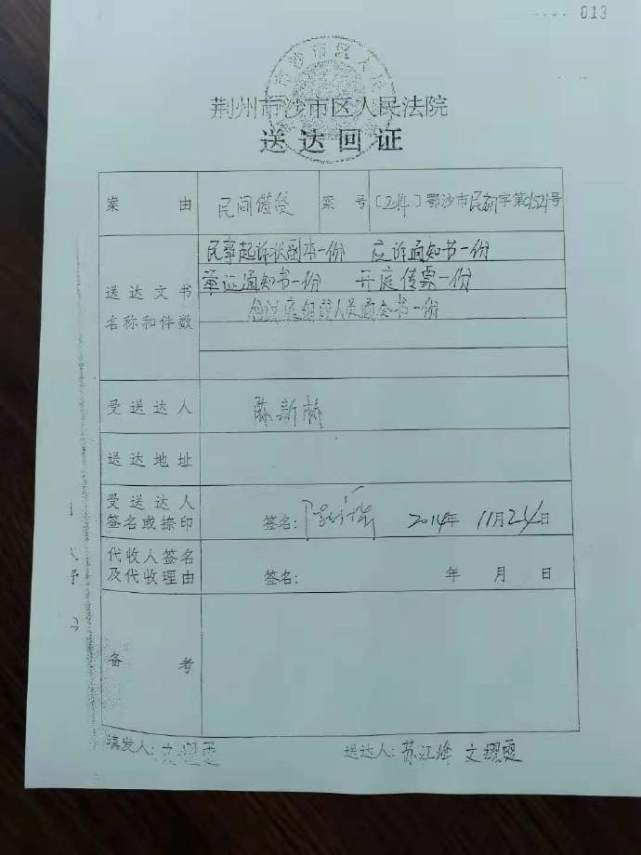 013
荆州市沙市区人民法院
送达回证
案由 民间借贷 案号 鄂沙市民初字第 号
送达文书名称和件数
民事起诉状副本一份 应诉通知书一份
举证通知书一份 开庭传票一份
合议庭组成人员通知书一份
受送达人 陈新桥
送达地址
受送达人签名或捺印 签名: 2014年 11月24日
代收人签名及代收理由 签名: 年 月 日
备考
填发人: 送达人: 苏江峰